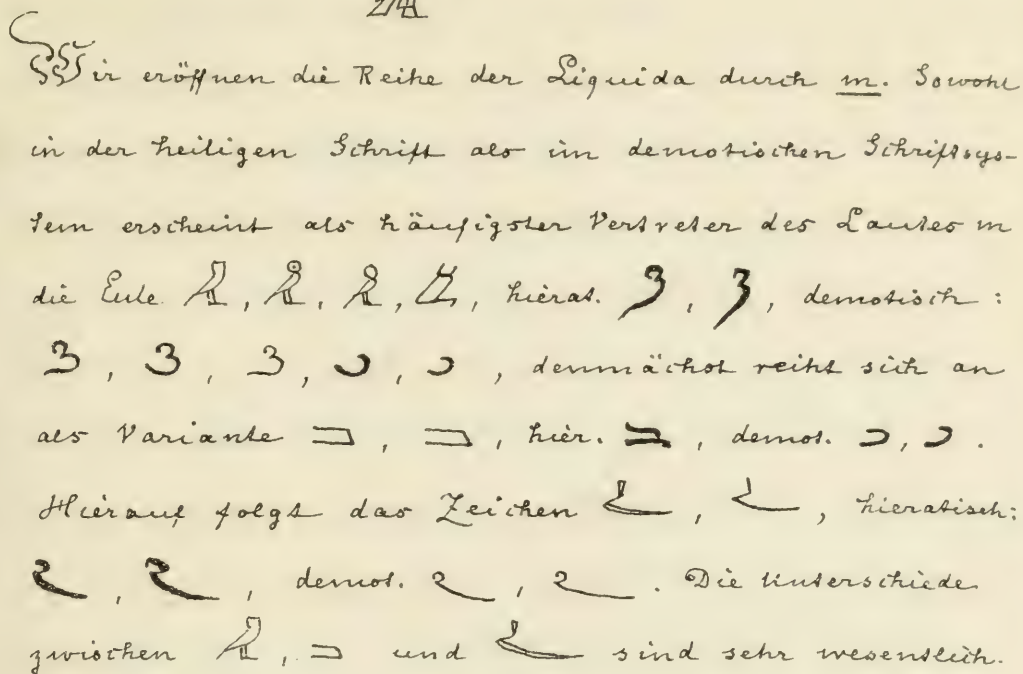 Wir eröffnen die Reihe der Liquida durch m. Sowohl
in der heiligen Schrift als im demotischen Schriftsys-
tem erscheint als häufigster Vertreter des Lautes m
die Eule 𓅓, 𓅓, 𓅓, , hierat. , , demotisch:
, , , , , demnächst reiht sich an
als Variante , , hier. , demot. , .
Hierauf folgt das Zeichen , , hieratisch:
, , demot. , . Die Unterschiede
zwischen 𓅓, und sind sehr wesentlich.